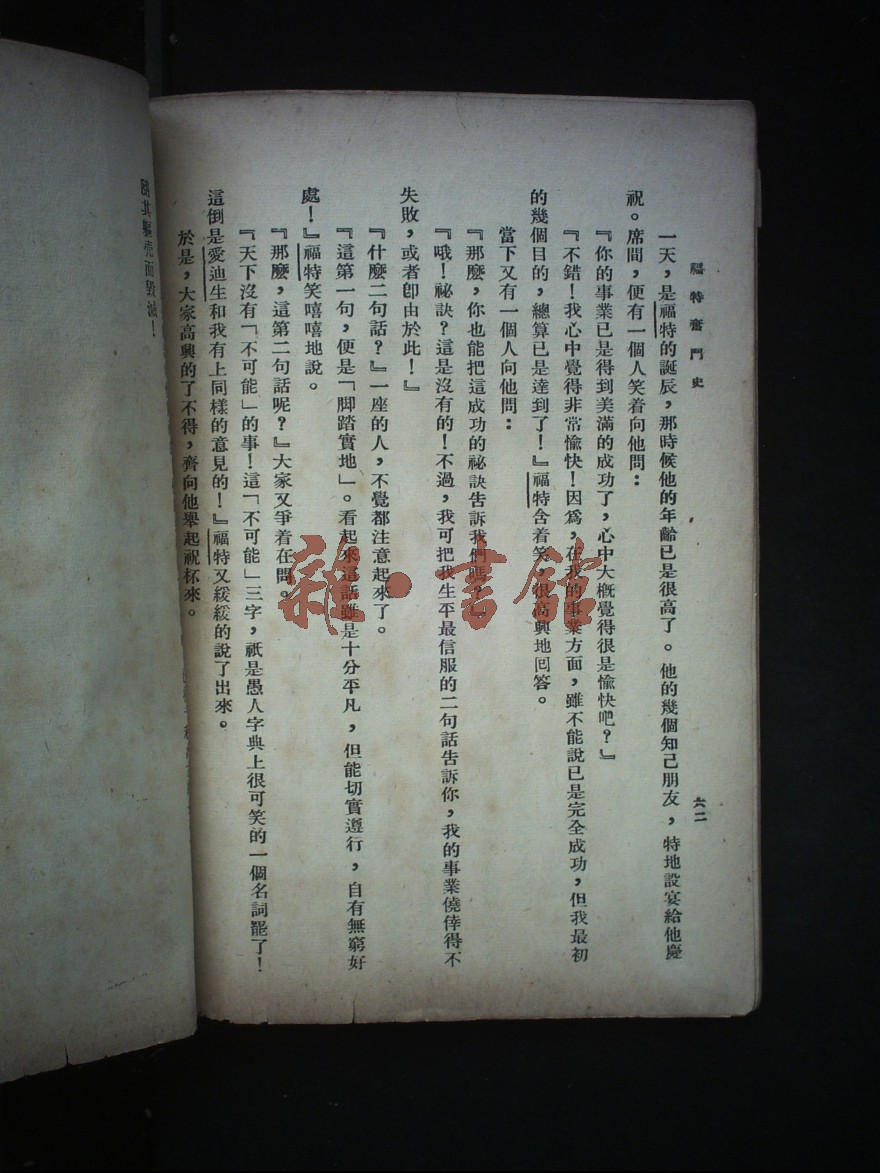 福特奮鬥史
六二
一天，是福特的誕辰，那時候他的年齡已是很高了。他的幾個知己朋友，特地設宴給他慶
祝。席間，便有一個人笑着向他問：
『你的事業已是得到美滿的成功了，心中大概覺得很是愉快吧？』
『不錯！我心中覺得非常愉快！因爲，在我的事業方面，雖不能說已是完全成功，但我最初
的幾個目的，總算已是達到了！』福特含着笑，很高興地回答。
當下又有一個人向他問：
『那麽，你也能把這成功的祕訣告訴我們嗎？』
『哦！祕訣？這是沒有的！不過，我可把我生平最信服的二句話告訴你，我的事業僥倖得不
失敗，或者卽由於此！』
『什麽二句話？』一座的人，不覺都注意起來了。
『這第一句，便是「脚踏實地」。看起來這話雖是十分平凡，但能切實遵行，自有無窮好
處！』福特笑嘻嘻地說。
『那麽，這第二句話呢？』大家又爭着在問。
『天下沒有「不可能」的事！這「不可能」三字，祇是愚人字典上很可笑的一個名詞罷了！
這倒是愛迪生和我有上同樣的意見的！』福特又緩緩的說了出來。
於是，大家高興的了不得，齊向他舉起祝杯來。
其軀壳而毀滅！
雜·書館